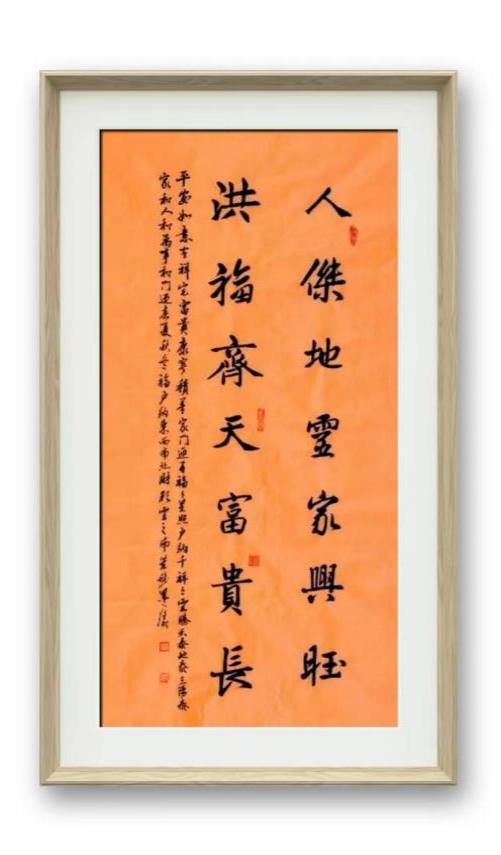 人傑地靈家興旺
洪福齊天富貴長
平安如意吉祥宅富貴康寧積善家门迎百福々星照户納千祥々雲騰天泰地泰三陽泰
家和人和萬事和门迎春夏秋冬福户納東西南北財彩雲之南